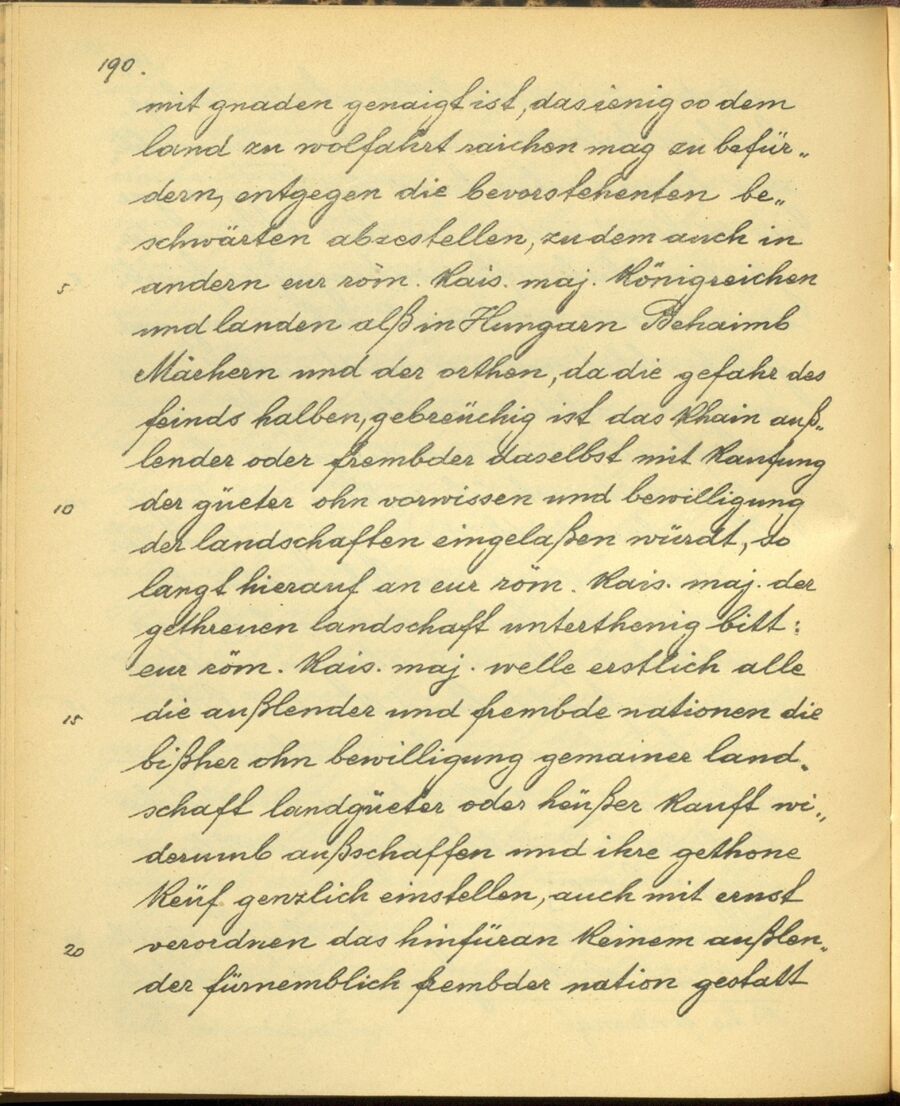 190.
mit gnaden genaigt ist, das ienig so dem
land zu wolfahrt raichen mag zu befür„
dern, entgegen die bevorstehenten be„
schwärten abzestellen, zu dem auch in
5 andern eur röm. Kais. maj. Königreichen
und landen alß in Hungarn Behaimb
Märhern und der orthen, da die gefahr des
feinds halben, gebreüchig ist das Khain auß„
lender oder frembder daselbst mit Kaufung
10 der güeter ohn vorwissen und bewilligung
der landschaften eingelaßen würdt, so
langt hierauf an eur röm. Kais. maj. der
gethreuen landschaft unterthenig bitt:
eur röm. Kais. maj. welle erstlich alle
15 die außlender und frembde nationen die
bißher ohn bewilligung gemainer land„
schaft landgüeter oder heüßer Kauft wi„
derumb außschaffen und ihre gethone
Keüf genzlich einstellen, auch mit ernst
20 verordnen das hinfüran Keinem außlen„
der fürnemblich frembder nation gestatt